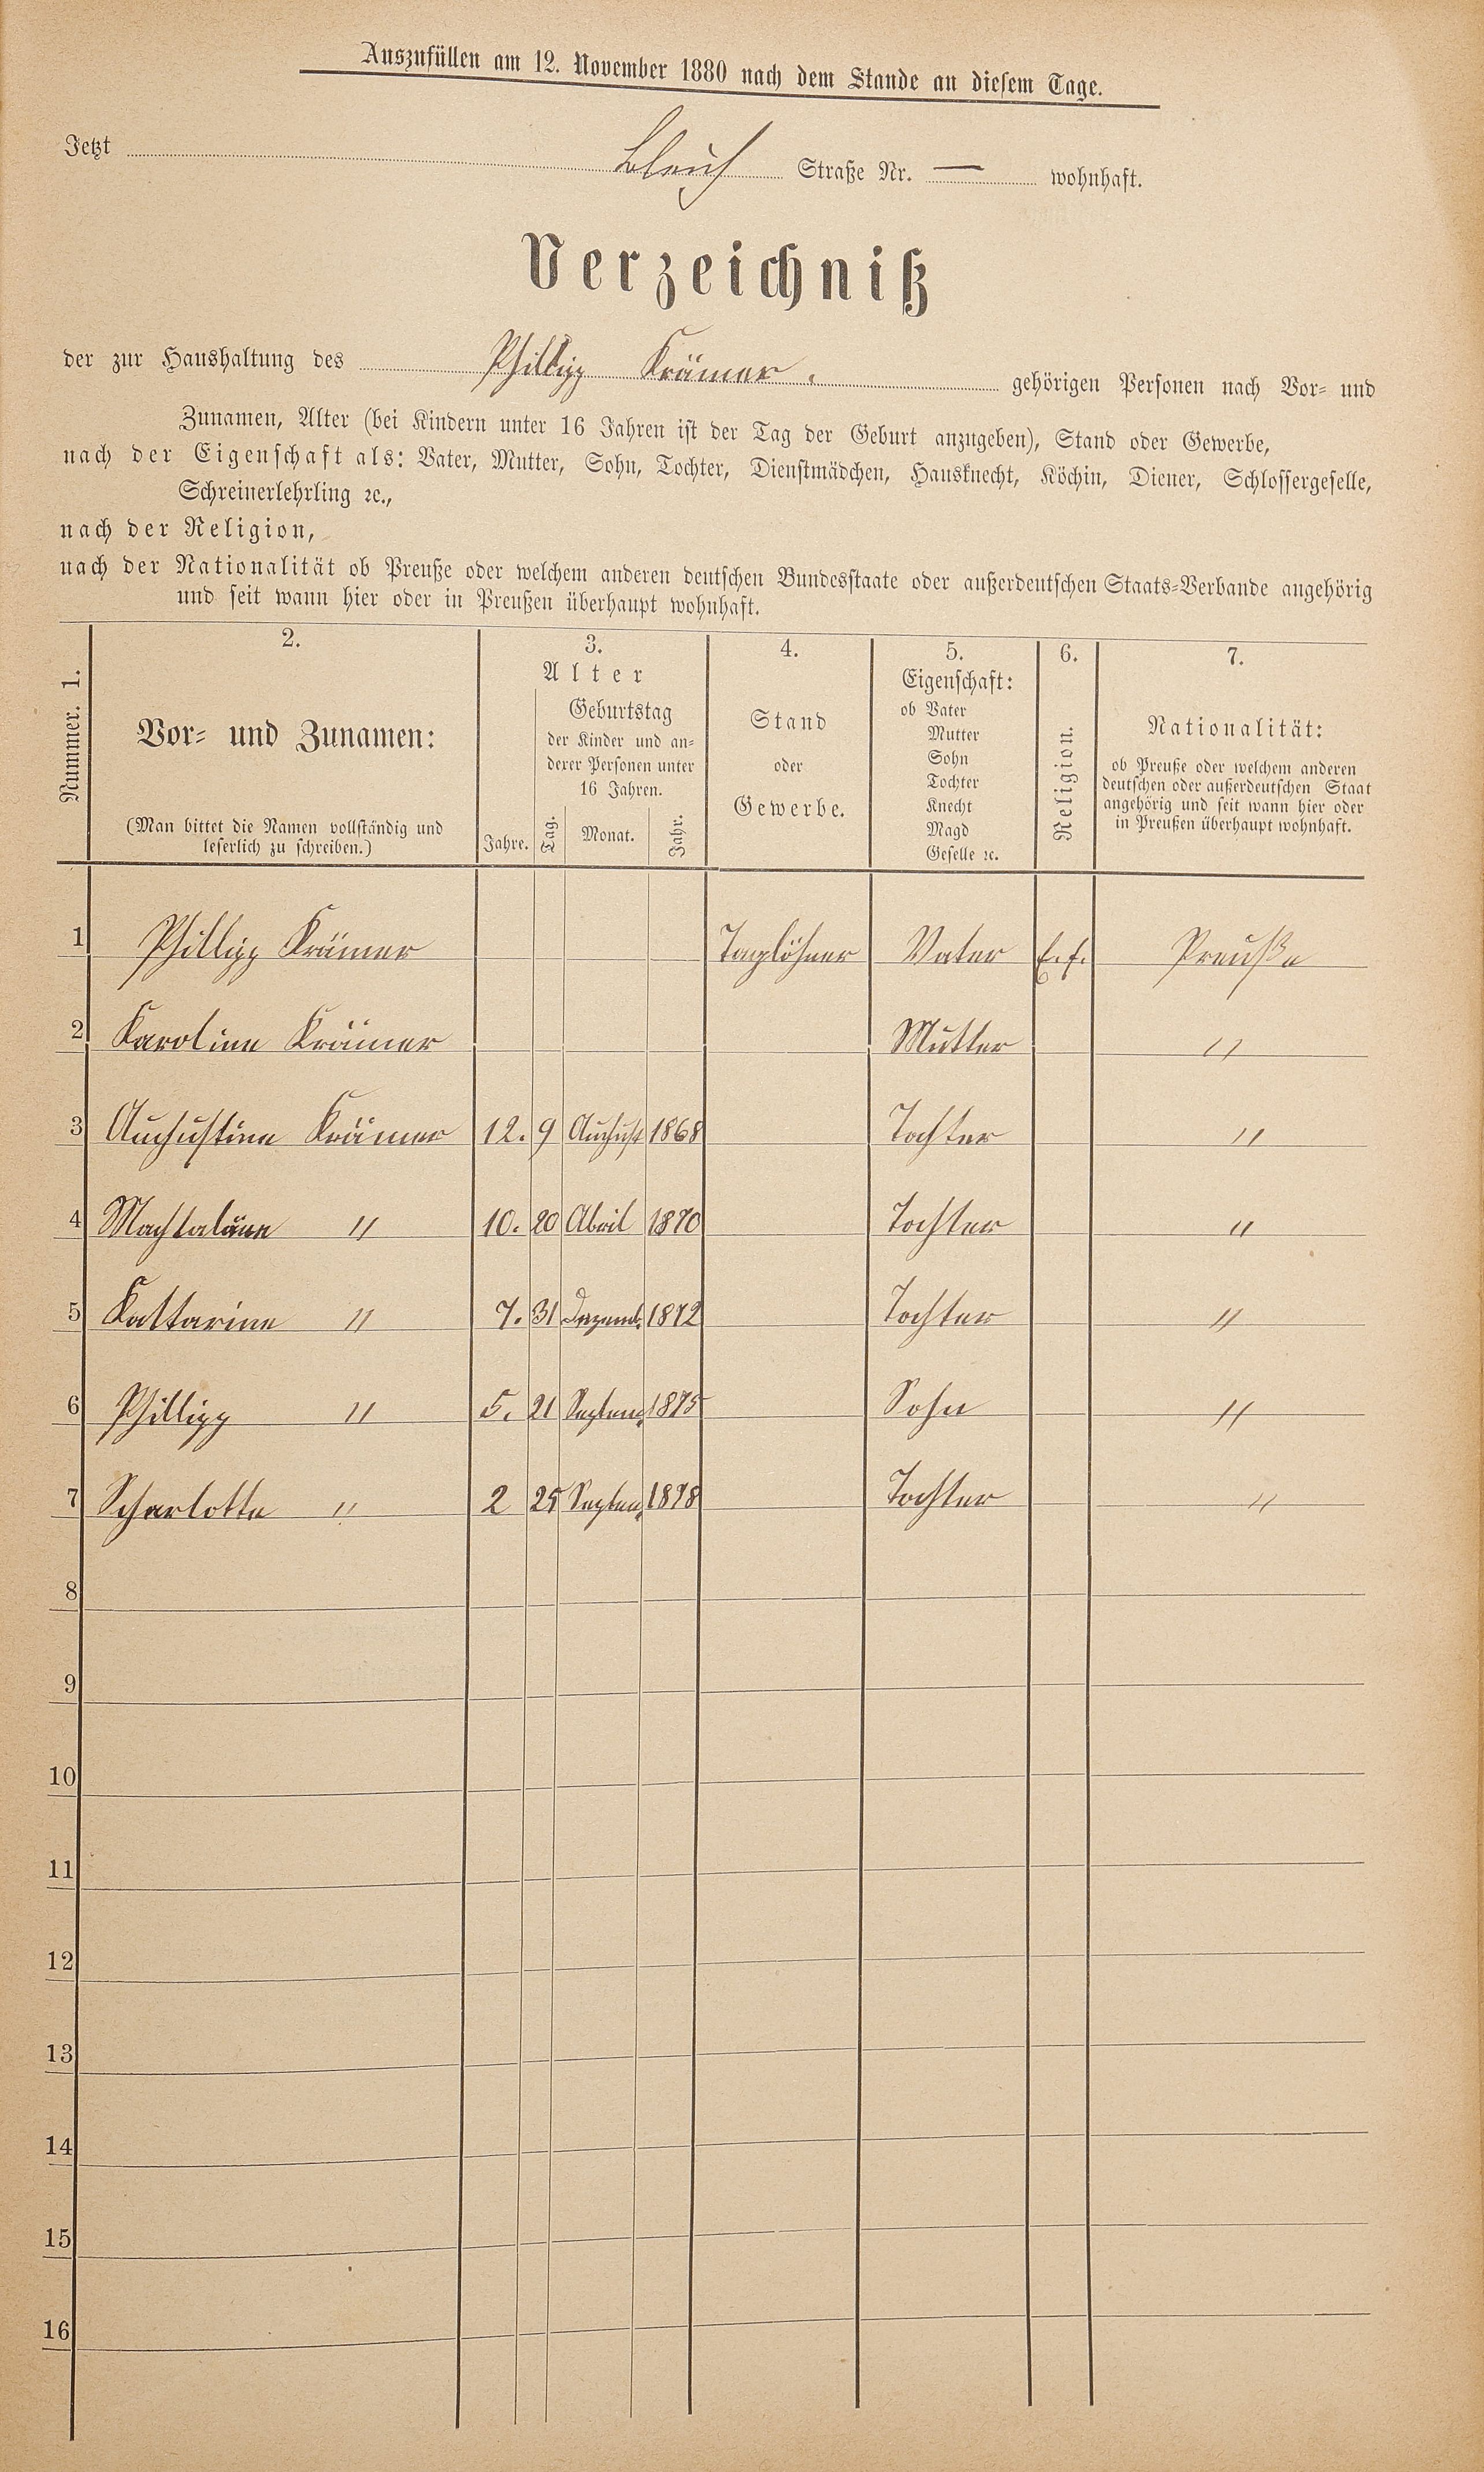 Auszufüllen am 12. November 1880 nach dem Stande an diesem Tage.
Jetzt Bleich Straße Nr. — wohnhaft.
Verzeichniß
der zur Haushaltung des Phillipp Krämer. gehörigen Personen nach Vor- und
Zunamen, Alter (bei Kindern unter 16 Jahren ist der Tag der Geburt anzugeben), Stand oder Gewerbe,
nach der Eigenschaft als: Vater, Mutter, Sohn, Tochter, Dienstmädchen, Hausknecht, Köchin, Diener, Schlossergeselle,
Schreinerlehrling ꝛc.,
nach der Religion,
nach der Nationalität ob Preuße oder welchem anderen deutschen Bundesstaate oder außerdeutschen Staats-Verbande angehörig
und seit wann hier oder in Preußen überhaupt wohnhaft.
Nummer. 1.
2.
Vor- und Zunamen:
(Man bittet die Namen vollständig und
leserlich zu schreiben.)
3.
Alter
Geburtstag
der Kinder und an-
derer Personen unter
16 Jahren.
Jahre. Tag. Monat. Jahr.
4.
Stand
oder
Gewerbe.
5.
Eigenschaft:
ob Vater
Mutter
Sohn
Tochter
Knecht
Magd
Geselle ꝛc.
6.
Religion.
7.
Nationalität:
ob Preuße oder welchem anderen
deutschen oder außerdeutschen Staat
angehörig und seit wann hier oder
in Preußen überhaupt wohnhaft.
1 Phillipp Krämer Taglöhner Vater Preuße
2 Karoline Krämer Mutter "
3 Auchustine Krämer 12. 9 Auchust 1868 Tochter "
4 Machtaläne " 10. 20 Abril 1870 Tochter "
5 Kattarine " 7. 31 Dezemb. 1872 Tochter "
6 Phillipp " 5. 21 Septem. 1875 Sohn "
7 Scharlotte " 2 25 Septem. 1878 Tochter "
8
9
10
11
12
13
14
15
16